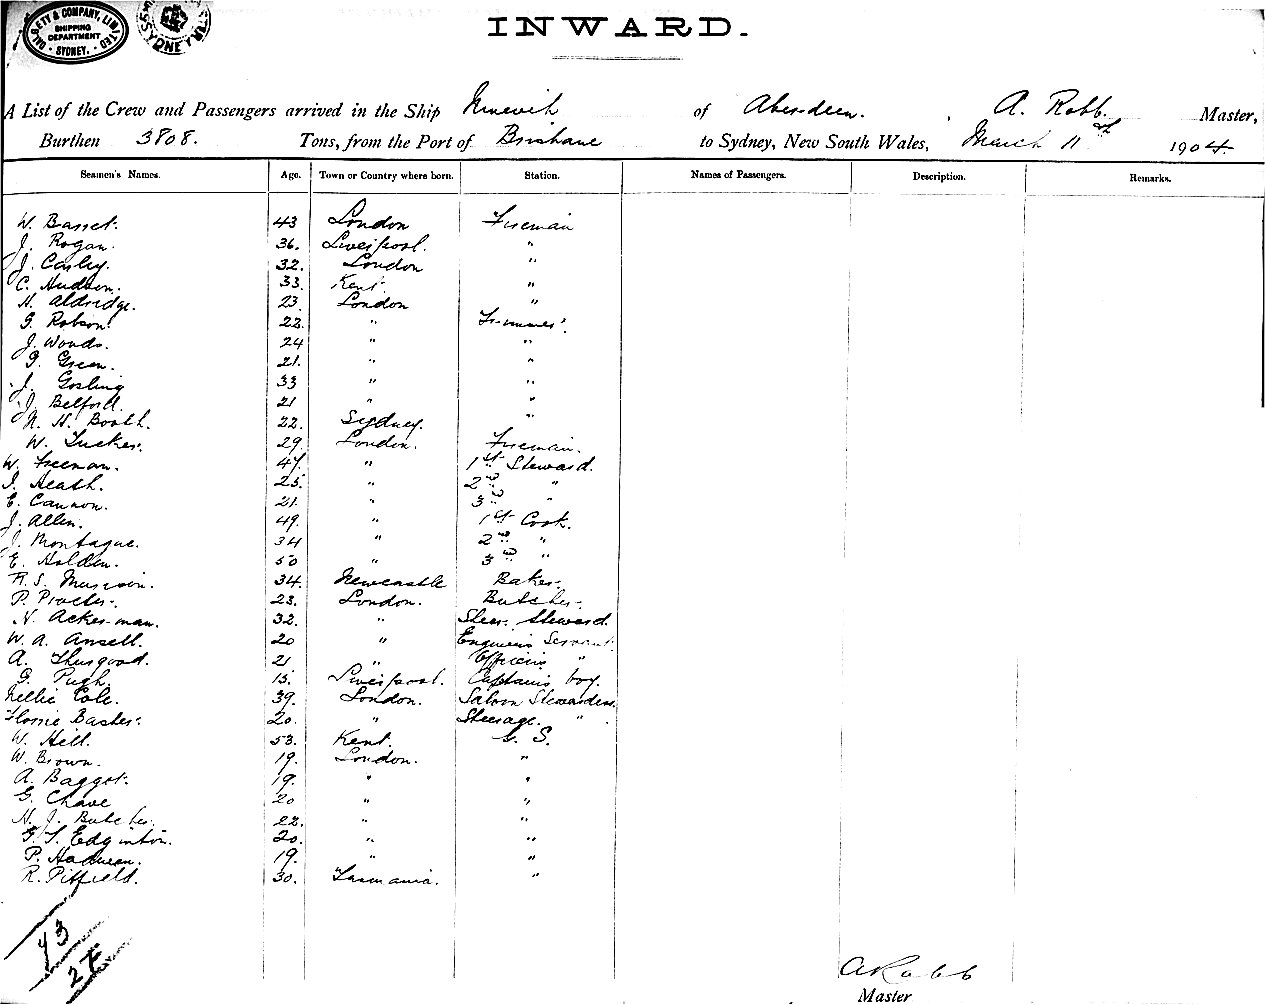 DALGETY & COMPANY, LIMITED
SHIPPING DEPARTMENT
SYDNEY.
SYDNEY
INWARD.
A List of the Crew and Passengers arrived in the Ship of Aberdeen. A. Robb. Master,
Burthen 3808. Tons, from the Port of Brisbane to Sydney, New South Wales, March 11th 1904.
Seamen's Names. Age. Town or Country where born. Station. Names of Passengers. Description. Remarks.
W. Basset. 43 London Fireman
J. Rogan. 36. Liverpool. "
J. Casley. 32. London "
C. Hudson. 33 Kent "
H. Aldridge. 23. London "
G. Robson. 22. " Trimmer.
J. Woods. 24 " "
G. Green. 21. " "
J. Gosling 33 " "
J. Belford. 21 " "
N. H. Booth. 22. Sydney. "
W. Tucker. 29. London. Fireman.
W. Freeman. 47. " 1st Steward.
J. Heath. 25. " 2nd "
E. Cannon. 21. " 3rd "
J. Allen. 49. " 1st Cook.
J. Montague. 34 " 2nd "
E. Holden. 50 " 3rd "
R. S. 34. Newcastle Baker.
P. Procter. 23. London. Butcher.
N. Ackerman. 32. " Steer. Steward.
W. A. Ansell. 20 " Engineers Servant.
A. Thurgood. 21 " Officers "
G. Pugh. 15. Liverpool. Captains boy.
Nellie Cole. 39. London. Saloon Stewardess.
Florrie Basher. 20. " Steerage. "
W. Hill. 53. Kent. G. S.
W. Brown. 19. London. "
A. Baggot. 19. " "
G. Chave 20 " "
H. J. Butcher. 22. " "
G. T. Edginton. 20. " "
P. 19. " "
R. Pitfield. 30. Tasmania. "
73
27
A Robb
Master